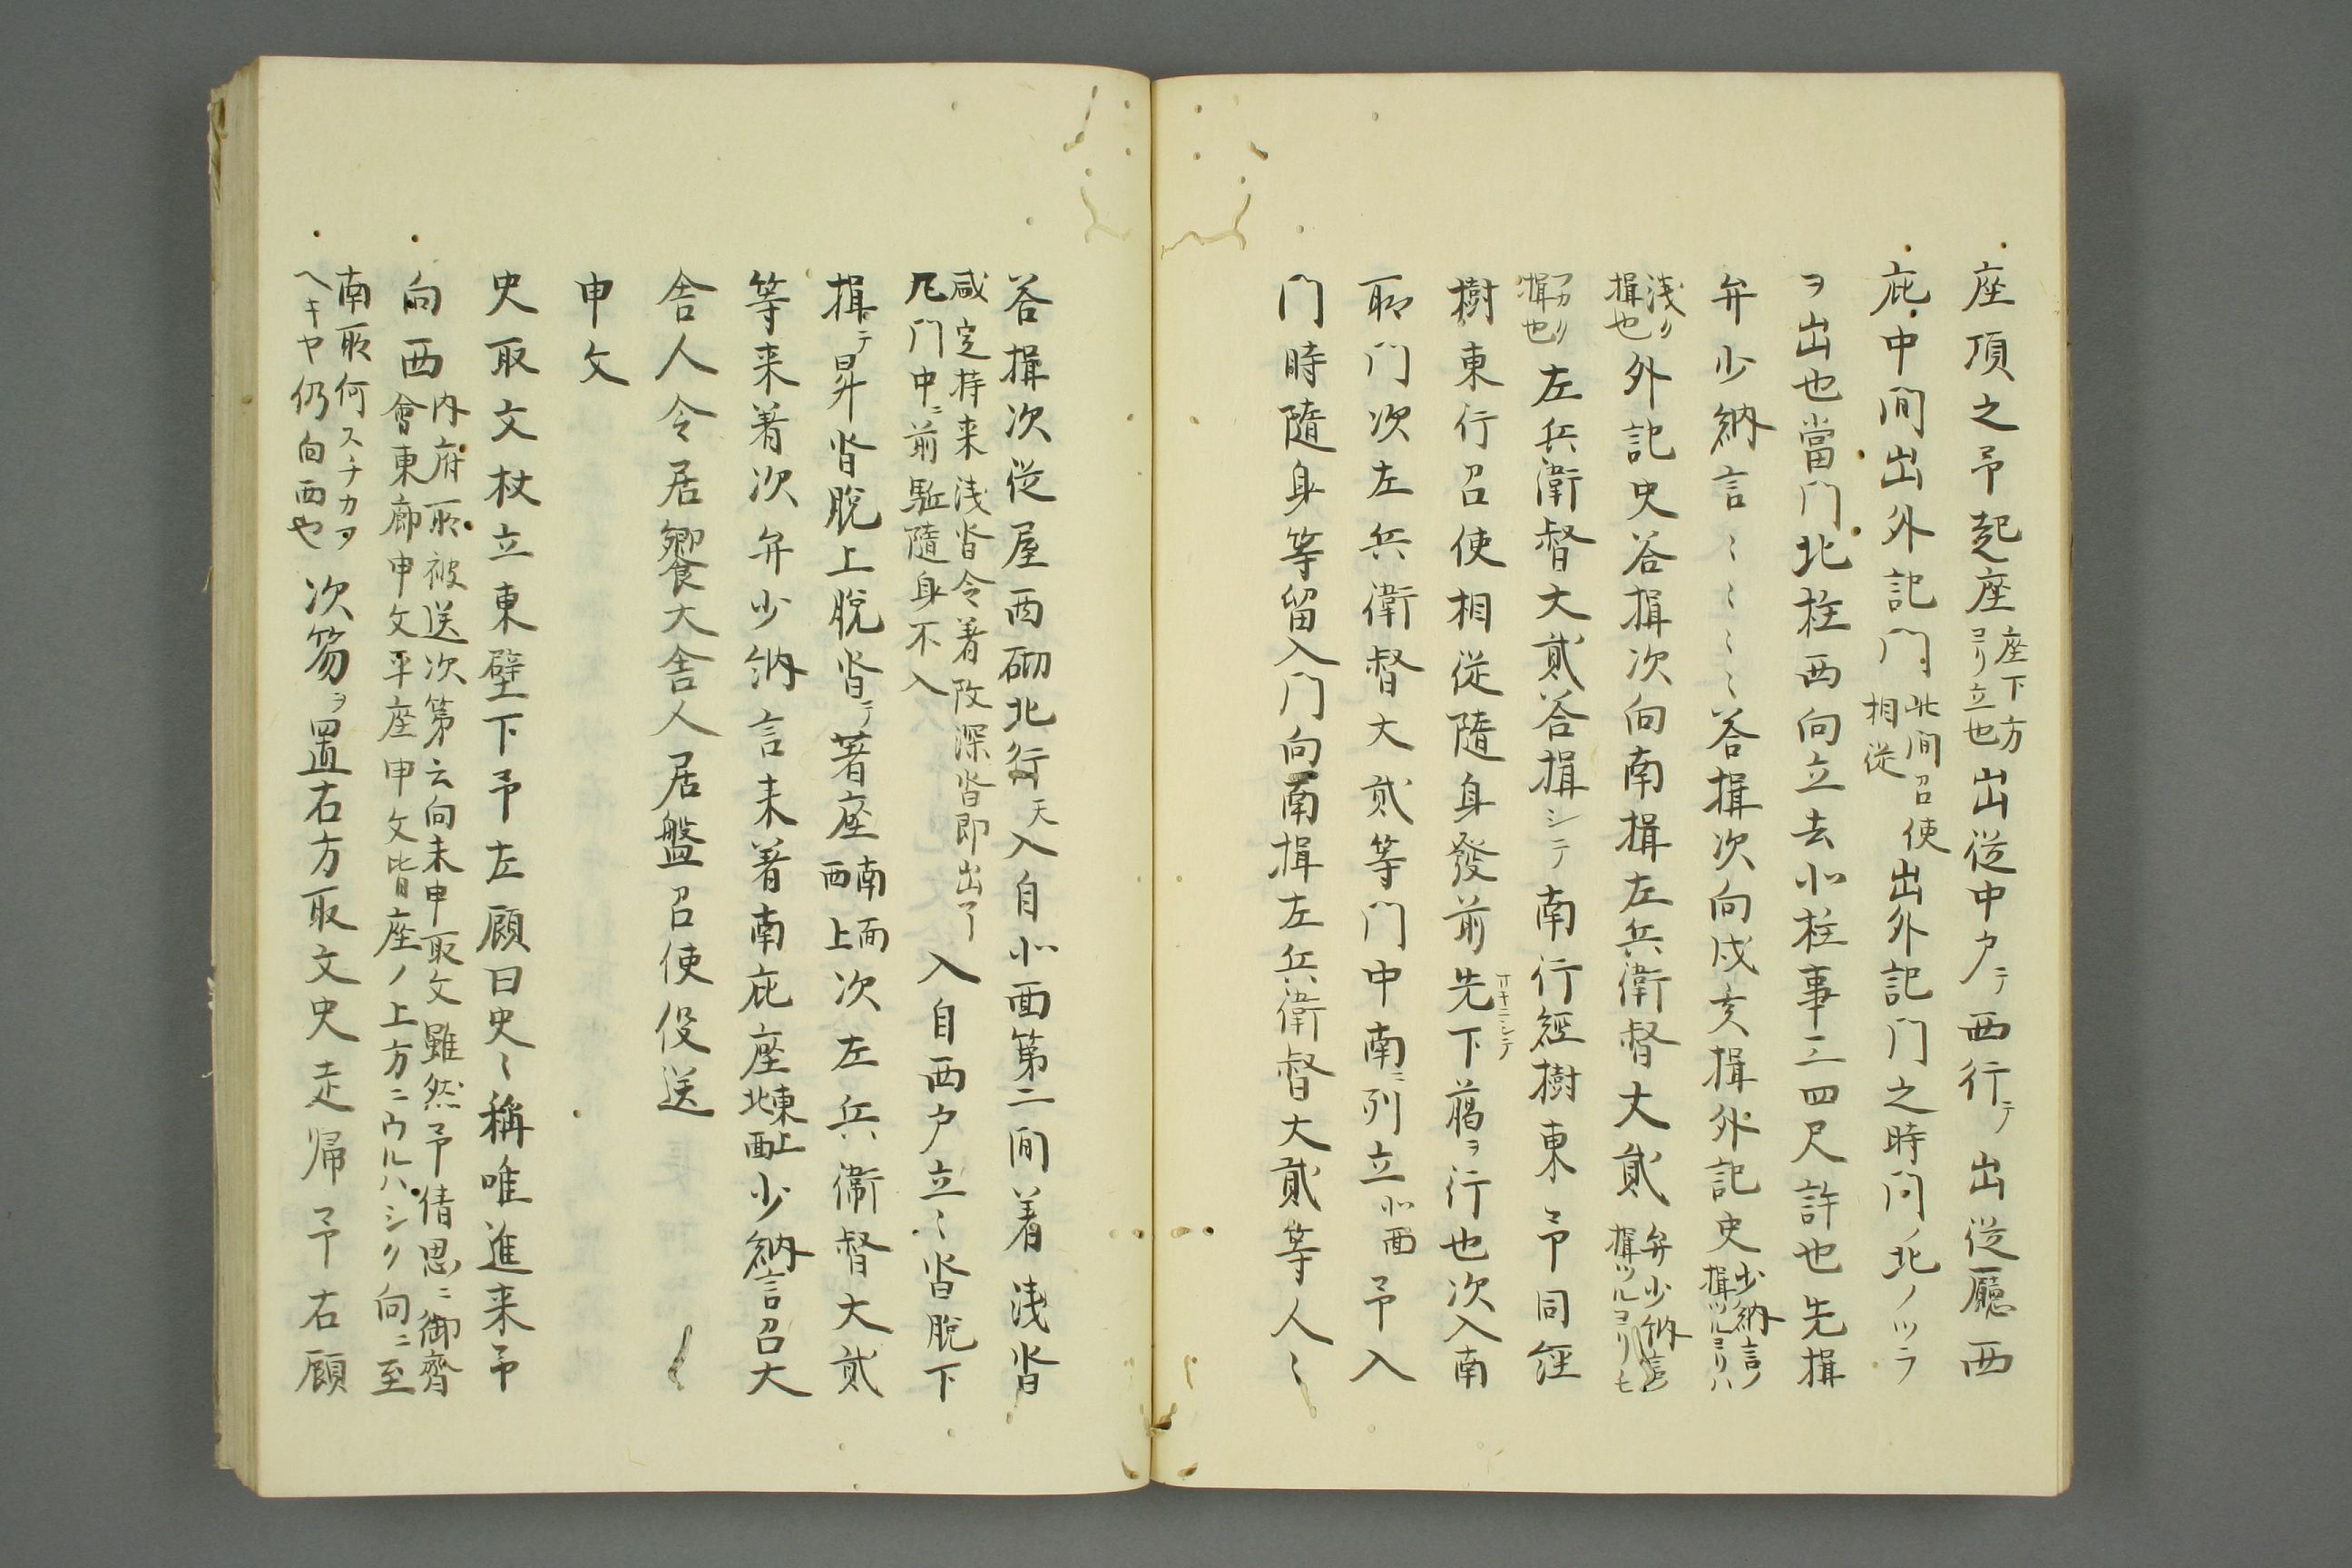 座頂之予起座座下方ヨリ立也出従中戸テ西行テ出従廳西
庇中間出外記門此間召使相従出外記門之時門ノ北ノツラ
ヲ出也當門北柱西向立去北柱事三四尺許也先揖
弁少納言〻〻〻〻答揖次向戌亥揖外記史少納言ノ揖ツルヨリハ
浅ク揖也外記史答揖次向南揖左兵衛督大貳弁少納言揖ツルヨリモ
フカク揖也左兵衛督大貳答揖シテ南行經樹東予同経
樹東行召使相従随身發前先サキニシテ下﨟ヲ行也次入南
所門次左兵衛督大貳等門中南ニ列立北面予入
門時随身等留入門向南揖左兵衛督大貳等人〻
答揖次従屋西砌北行天入自北面第二間着浅沓
咸定持来浅沓令着改深沓即出了
凡門中ニ前駈隨身不入入自西戸立〻沓脱下
揖テ昇沓脱上脱沓テ著座南面西上次左兵衛督大貳
等来着次弁少納言来着南庇座東上北面少納言召大
舎人令居饗大舎人居盤召使役送
申文
史取文杖立東壁下予左顧曰史〻稱唯進来予
向西内府所被送次第云向未申取文雖然予倩思ニ御齊
會東廊申文平座申文皆座ノ上方ニウルハシク向ニ至
南所何スチカヲ
ヘキヤ仍向西也次笏ヲ置右方取文史走帰予右顧